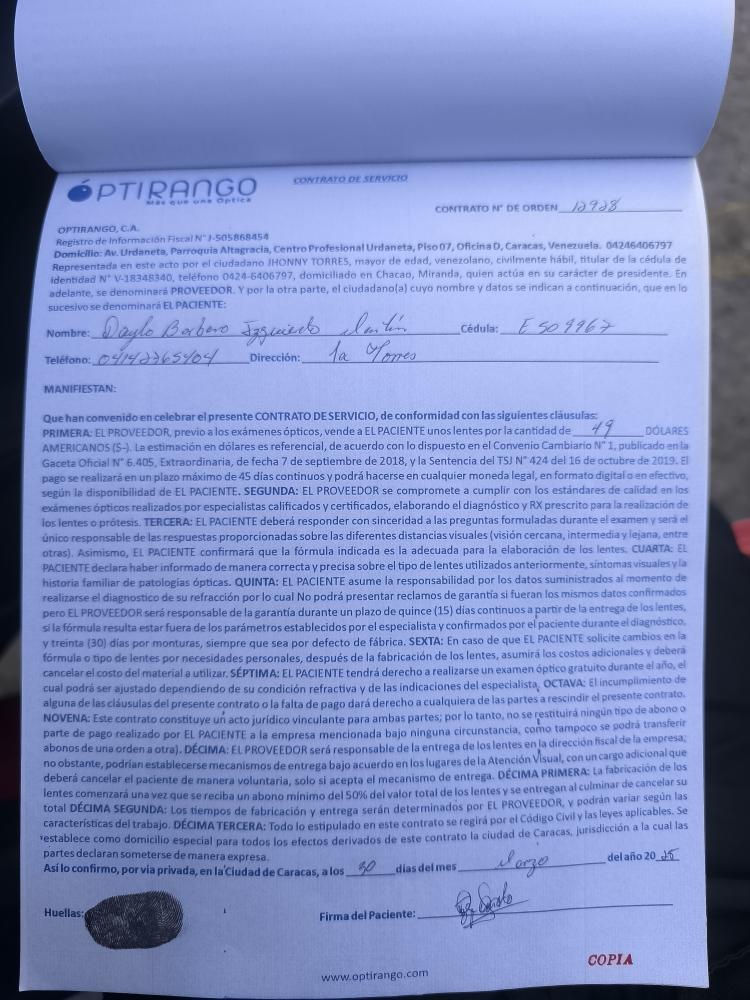 ÓPTIRANGO
Más que una Óptica
CONTRATO DE SERVICIO
CONTRATO N° DE ORDEN 12928
OPTIRANGO, C.A.
Registro de Información Fiscal N° J-505868454
Domicilio: Av. Urdaneta, Parroquia Altagracia, Centro Profesional Urdaneta, Piso 07, Oficina D, Caracas, Venezuela. 04246406797
Representada en este acto por el ciudadano JHONNY TORRES, mayor de edad, venezolano, civilmente hábil, titular de la cédula de
identidad N° V-18348340, teléfono 0424-6406797, domiciliado en Chacao, Miranda, quien actúa en su carácter de presidente. En
adelante, se denominará PROVEEDOR. Y por la otra parte, el ciudadano(a) cuyo nombre y datos se indican a continuación, que en lo
sucesivo se denominará EL PACIENTE:
Nombre: Barbaro Izquierdo Cédula: E 509967
Teléfono: 04142265404 Dirección: la Torres
MANIFIESTAN:
Que han convenido en celebrar el presente CONTRATO DE SERVICIO, de conformidad con las siguientes cláusulas:
PRIMERA: EL PROVEEDOR, previo a los exámenes ópticos, vende a EL PACIENTE unos lentes por la cantidad de 49 DÓLARES
AMERICANOS ($-). La estimación en dólares es referencial, de acuerdo con lo dispuesto en el Convenio Cambiario N° 1, publicado en la
Gaceta Oficial N° 6.405, Extraordinaria, de fecha 7 de septiembre de 2018, y la Sentencia del TSJ N° 424 del 16 de octubre de 2019. El
pago se realizará en un plazo máximo de 45 días continuos y podrá hacerse en cualquier moneda legal, en formato digital o en efectivo,
según la disponibilidad de EL PACIENTE. SEGUNDA: EL PROVEEDOR se compromete a cumplir con los estándares de calidad en los
exámenes ópticos realizados por especialistas calificados y certificados, elaborando el diagnóstico y RX prescrito para la realización de
los lentes o prótesis. TERCERA: EL PACIENTE deberá responder con sinceridad a las preguntas formuladas durante el examen y será el
único responsable de las respuestas proporcionadas sobre las diferentes distancias visuales (visión cercana, intermedia y lejana, entre
otras). Asimismo, EL PACIENTE confirmará que la fórmula indicada es la adecuada para la elaboración de los lentes. CUARTA: EL
PACIENTE declara haber informado de manera correcta y precisa sobre el tipo de lentes utilizados anteriormente, síntomas visuales y la
historia familiar de patologías ópticas. QUINTA: EL PACIENTE asume la responsabilidad por los datos suministrados al momento de
realizarse el diagnostico de su refracción por lo cual No podrá presentar reclamos de garantía si fueran los mismos datos confirmados
pero EL PROVEEDOR será responsable de la garantía durante un plazo de quince (15) días continuos a partir de la entrega de los lentes,
si la fórmula resulta estar fuera de los parámetros establecidos por el especialista y confirmados por el paciente durante el diagnóstico,
y treinta (30) días por monturas, siempre que sea por defecto de fábrica. SEXTA: En caso de que EL PACIENTE solicite cambios en la
fórmula o tipo de lentes por necesidades personales, después de la fabricación de los lentes, asumirá los costos adicionales y deberá
cancelar el costo del material a utilizar. SÉPTIMA: EL PACIENTE tendrá derecho a realizarse un examen óptico gratuito durante el año, el
cual podrá ser ajustado dependiendo de su condición refractiva y de las indicaciones del especialista. OCTAVA: El incumplimiento de
alguna de las cláusulas del presente contrato o la falta de pago dará derecho a cualquiera de las partes a rescindir el presente contrato.
NOVENA: Este contrato constituye un acto jurídico vinculante para ambas partes; por lo tanto, no se restituirá ningún tipo de abono o
parte de pago realizado por EL PACIENTE a la empresa mencionada bajo ninguna circunstancia, como tampoco se podrá transferir
abonos de una orden a otra). DÉCIMA: EL PROVEEDOR será responsable de la entrega de los lentes en la dirección fiscal de la empresa;
no obstante, podrían establecerse mecanismos de entrega bajo acuerdo en los lugares de la Atención Visual, con un cargo adicional que
deberá cancelar el paciente de manera voluntaria, solo si acepta el mecanismo de entrega. DÉCIMA PRIMERA: La fabricación de los
lentes comenzará una vez que se reciba un abono mínimo del 50% del valor total de los lentes y se entregan al culminar de cancelar su
total DÉCIMA SEGUNDA: Los tiempos de fabricación y entrega serán determinados por EL PROVEEDOR, y podrán variar según las
características del trabajo. DÉCIMA TERCERA: Todo lo estipulado en este contrato se regirá por el Código Civil y las leyes aplicables. Se
establece como domicilio especial para todos los efectos derivados de este contrato la ciudad de Caracas, jurisdicción a la cual las
partes declaran someterse de manera expresa.
Así lo confirmo, por vía privada, en la Ciudad de Caracas, a los 30 días del mes Marzo del año 20 25
Huellas:
Firma del Paciente:
COPIA
www.optirango.com